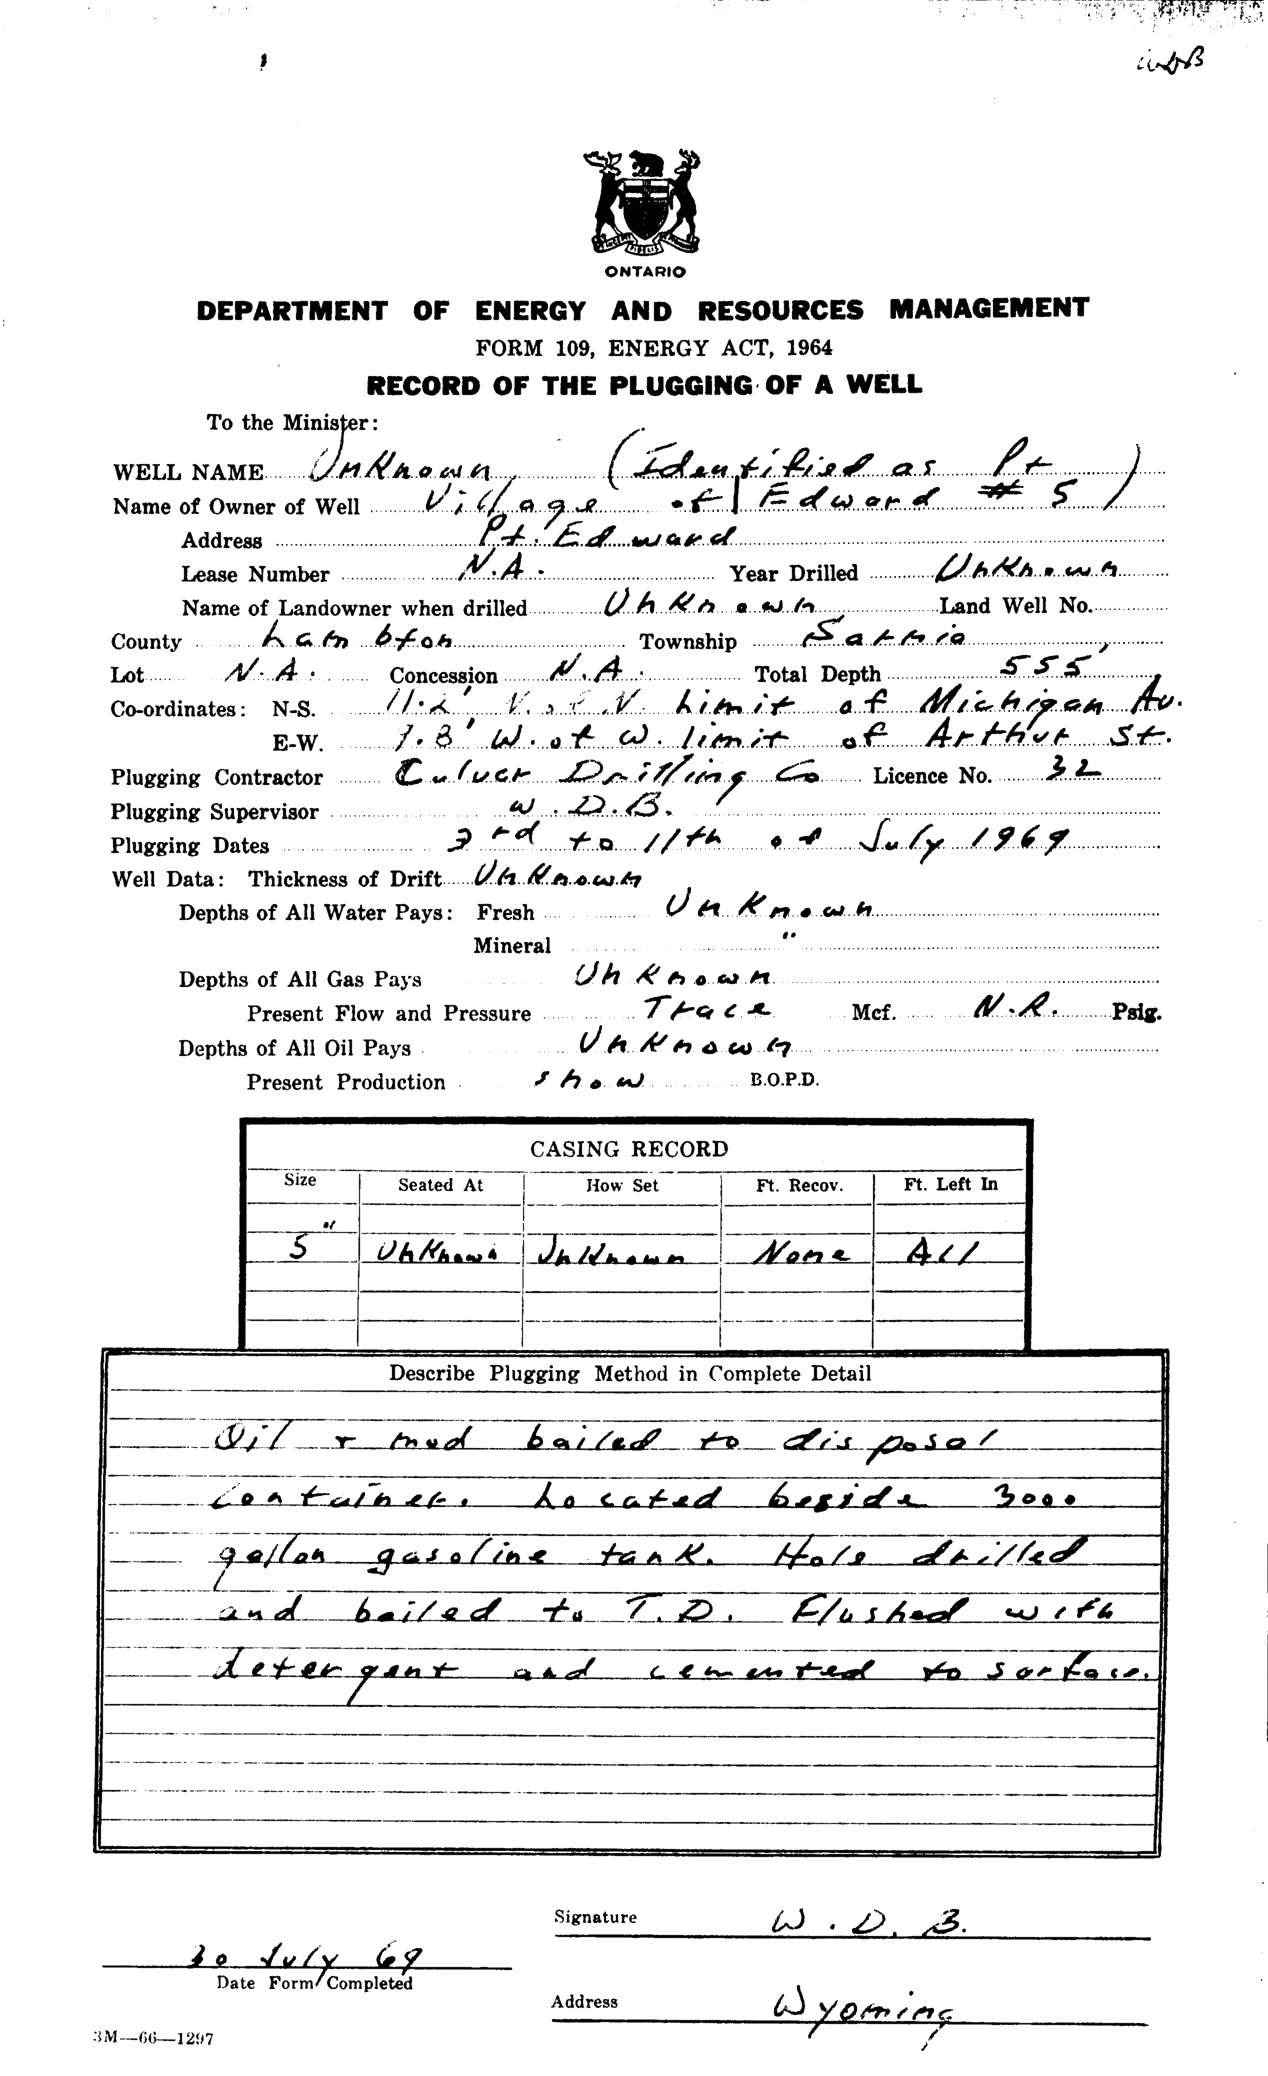 WDB
ONTARIO
DEPARTMENT OF ENERGY AND RESOURCES MANAGEMENT
FORM 109, ENERGY ACT, 1964
RECORD OF THE PLUGGING OF A WELL
To the Minister:
WELL NAME Unknown, (Identified as Pt
Name of Owner of Well Village of Edward # 5)
Address Pt. Edward
Lease Number N.A. Year Drilled Unknown
Name of Landowner when drilled Unknown Land Well No.
County Lambton Township Sarnia
Lot N.A. Concession N.A. Total Depth 555'
Co-ordinates: N-S. 11.2' N. of N. Limit of Michigan Av.
E-W. 1.8' W. of W. limit of Arthur St.
Plugging Contractor Culver Drilling Co Licence No. 32
Plugging Supervisor W.D.B.
Plugging Dates 3rd to 11th of July 1969
Well Data: Thickness of Drift Unknown
Depths of All Water Pays: Fresh Unknown
Mineral "
Depths of All Gas Pays Unknown
Present Flow and Pressure Trace Mcf. N.R. Psig.
Depths of All Oil Pays Unknown
Present Production show B.O.P.D.
CASING RECORD
Size Seated At How Set Ft. Recov. Ft. Left In
5" Unknown Unknown None All
Describe Plugging Method in Complete Detail
Oil + mud bailed to disposal
container. Located beside 3000
gallon gasoline tank. Hole drilled
and bailed to T.D. Flushed with
detergent and cemented to surface.
Signature W.D.B.
30 July 69
Date Form Completed
Address Wyoming
3M—66—1297